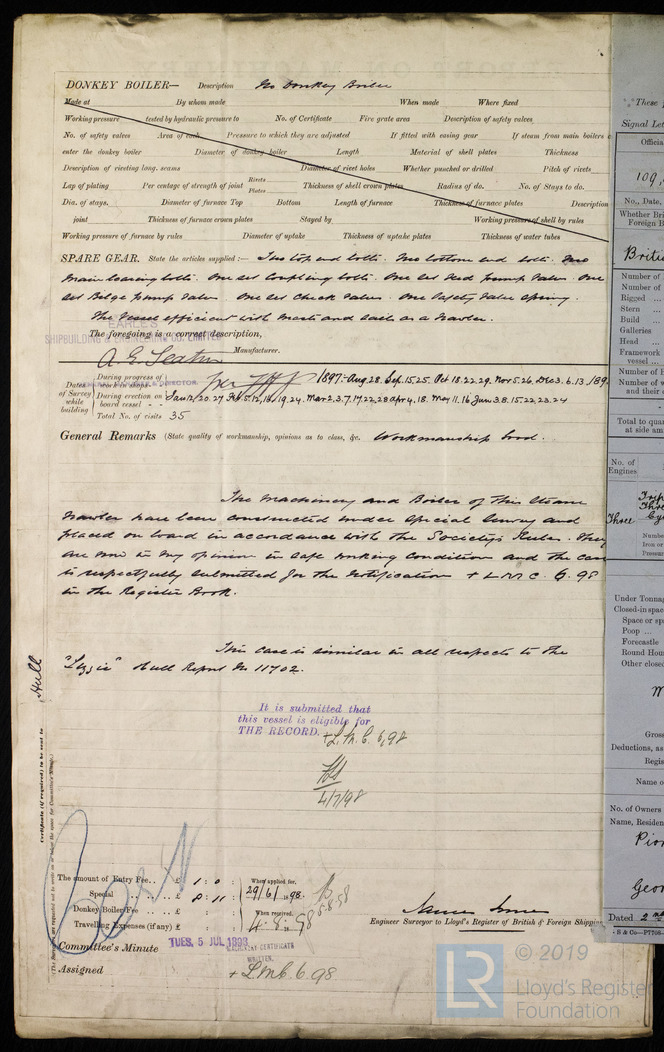 DONKEY BOILER— Description No Donkey Boiler
Made at By whom made When made Where fixed
Working pressure tested by hydraulic pressure to No. of Certificate Fire grate area Description of safety valves
No. of safety valves Area of each Pressure to which they are adjusted If fitted with easing gear If steam from main boilers
enter the donkey boiler Diameter of donkey boiler Length Material of shell plates Thickness
Description of riveting long. seams Diameter of rivet holes Whether punched or drilled Pitch of rivets
Lap of plating Per centage of strength of joint Rivets Plates Thickness of shell crown plates Radius of do. No. of Stays to do.
Dia. of stays. Diameter of furnace Top Bottom Length of furnace Thickness of furnace plates Description
joint Thickness of furnace crown plates Stayed by Working pressure of shell by rules
Working pressure of furnace by rules Diameter of uptake Thickness of uptake plates Thickness of water tubes
SPARE GEAR. State the articles supplied:— Two top end bolts. Two bottom end bolts. Two
main bearing bolts. One set Coupling bolts. One set Feed pump valves One
set Bilge pump valves. One set Check valves. One Safety valve Spring.
The Vessel efficient with masts and sails as a Trawler.
The foregoing is a correct description,
EARLE'S
SHIPBUILDING & ENGINEERING CO. LIMITED
A E Seaton Manufacturer.
Dates of Survey while building
During progress of work in shops - - 1897:- Aug. 28. Sep. 15. 25. Oct 18. 22. 29. Nov 5. 26. Dec 3. 6. 13. 189
During erection on board vessel - - Jan 12. 20. 27 Feb 5. 12. 16. 19. 24. Mar 2. 3. 7. 17. 22. 28 Apr 4. 18. May 11. 16 Jun 3. 8. 15. 22. 23. 24
Total No. of visits 35
General Remarks (State quality of workmanship, opinions as to class, &c. Workmanship Good.
The Machinery and Boiler of this Steam
Trawler have been constructed under Special Survey and
placed on board in accordance with the Society's Rules. They
are now in my opinion in safe working condition and the case
is respectfully submitted for the notification + L.M.C. 6.98
in the Register Book.
This case is similar in all respects to the
"Lizzie" Hull Report No 11702.
It is submitted that
this vessel is eligible for
THE RECORD. + L.M.C. 6.98
4/7/98
Hull
Certificate (if required) to be sent to
(The Surveyors are requested not to write on or below the space for Committee's Minute.)
The amount of Entry Fee. . £ 1 : 0 : When applied for,
Special . . . . £ 8 : 11 : 29/6/1898.
Donkey Boiler Fee . . . £ : : When received,
Travelling Expenses (if any) £ : : 4.8.1898
5.8.98
Engineer Surveyor to Lloyd's Register of British & Foreign Shipping
Committee's Minute TUES. 5 JUL 1898
MACHINERY CERTIFICATE
WRITTEN.
Assigned + LMC 6.98
"These
Signal Let
Official
109,
No., Date,
Whether Bri
Foreign B
Britis
Number of
Number of
Rigged ...
Stern ...
Build ...
Galleries
Head ...
Framework
vessel ...
Number of B
Number of w
and their c
Total to quar
at side am
No. of
Engines
Three
Under Tonnag
Closed-in spac
Space or sp
Poop ...
Forecastle
Round Hou
Other close
Gros
Deductions, as
Regis
Name o
No. of Owners
Name, Residen
Pion
Geor
Dated 2nd
© 2019
LR
Lloyd's Register
Foundation